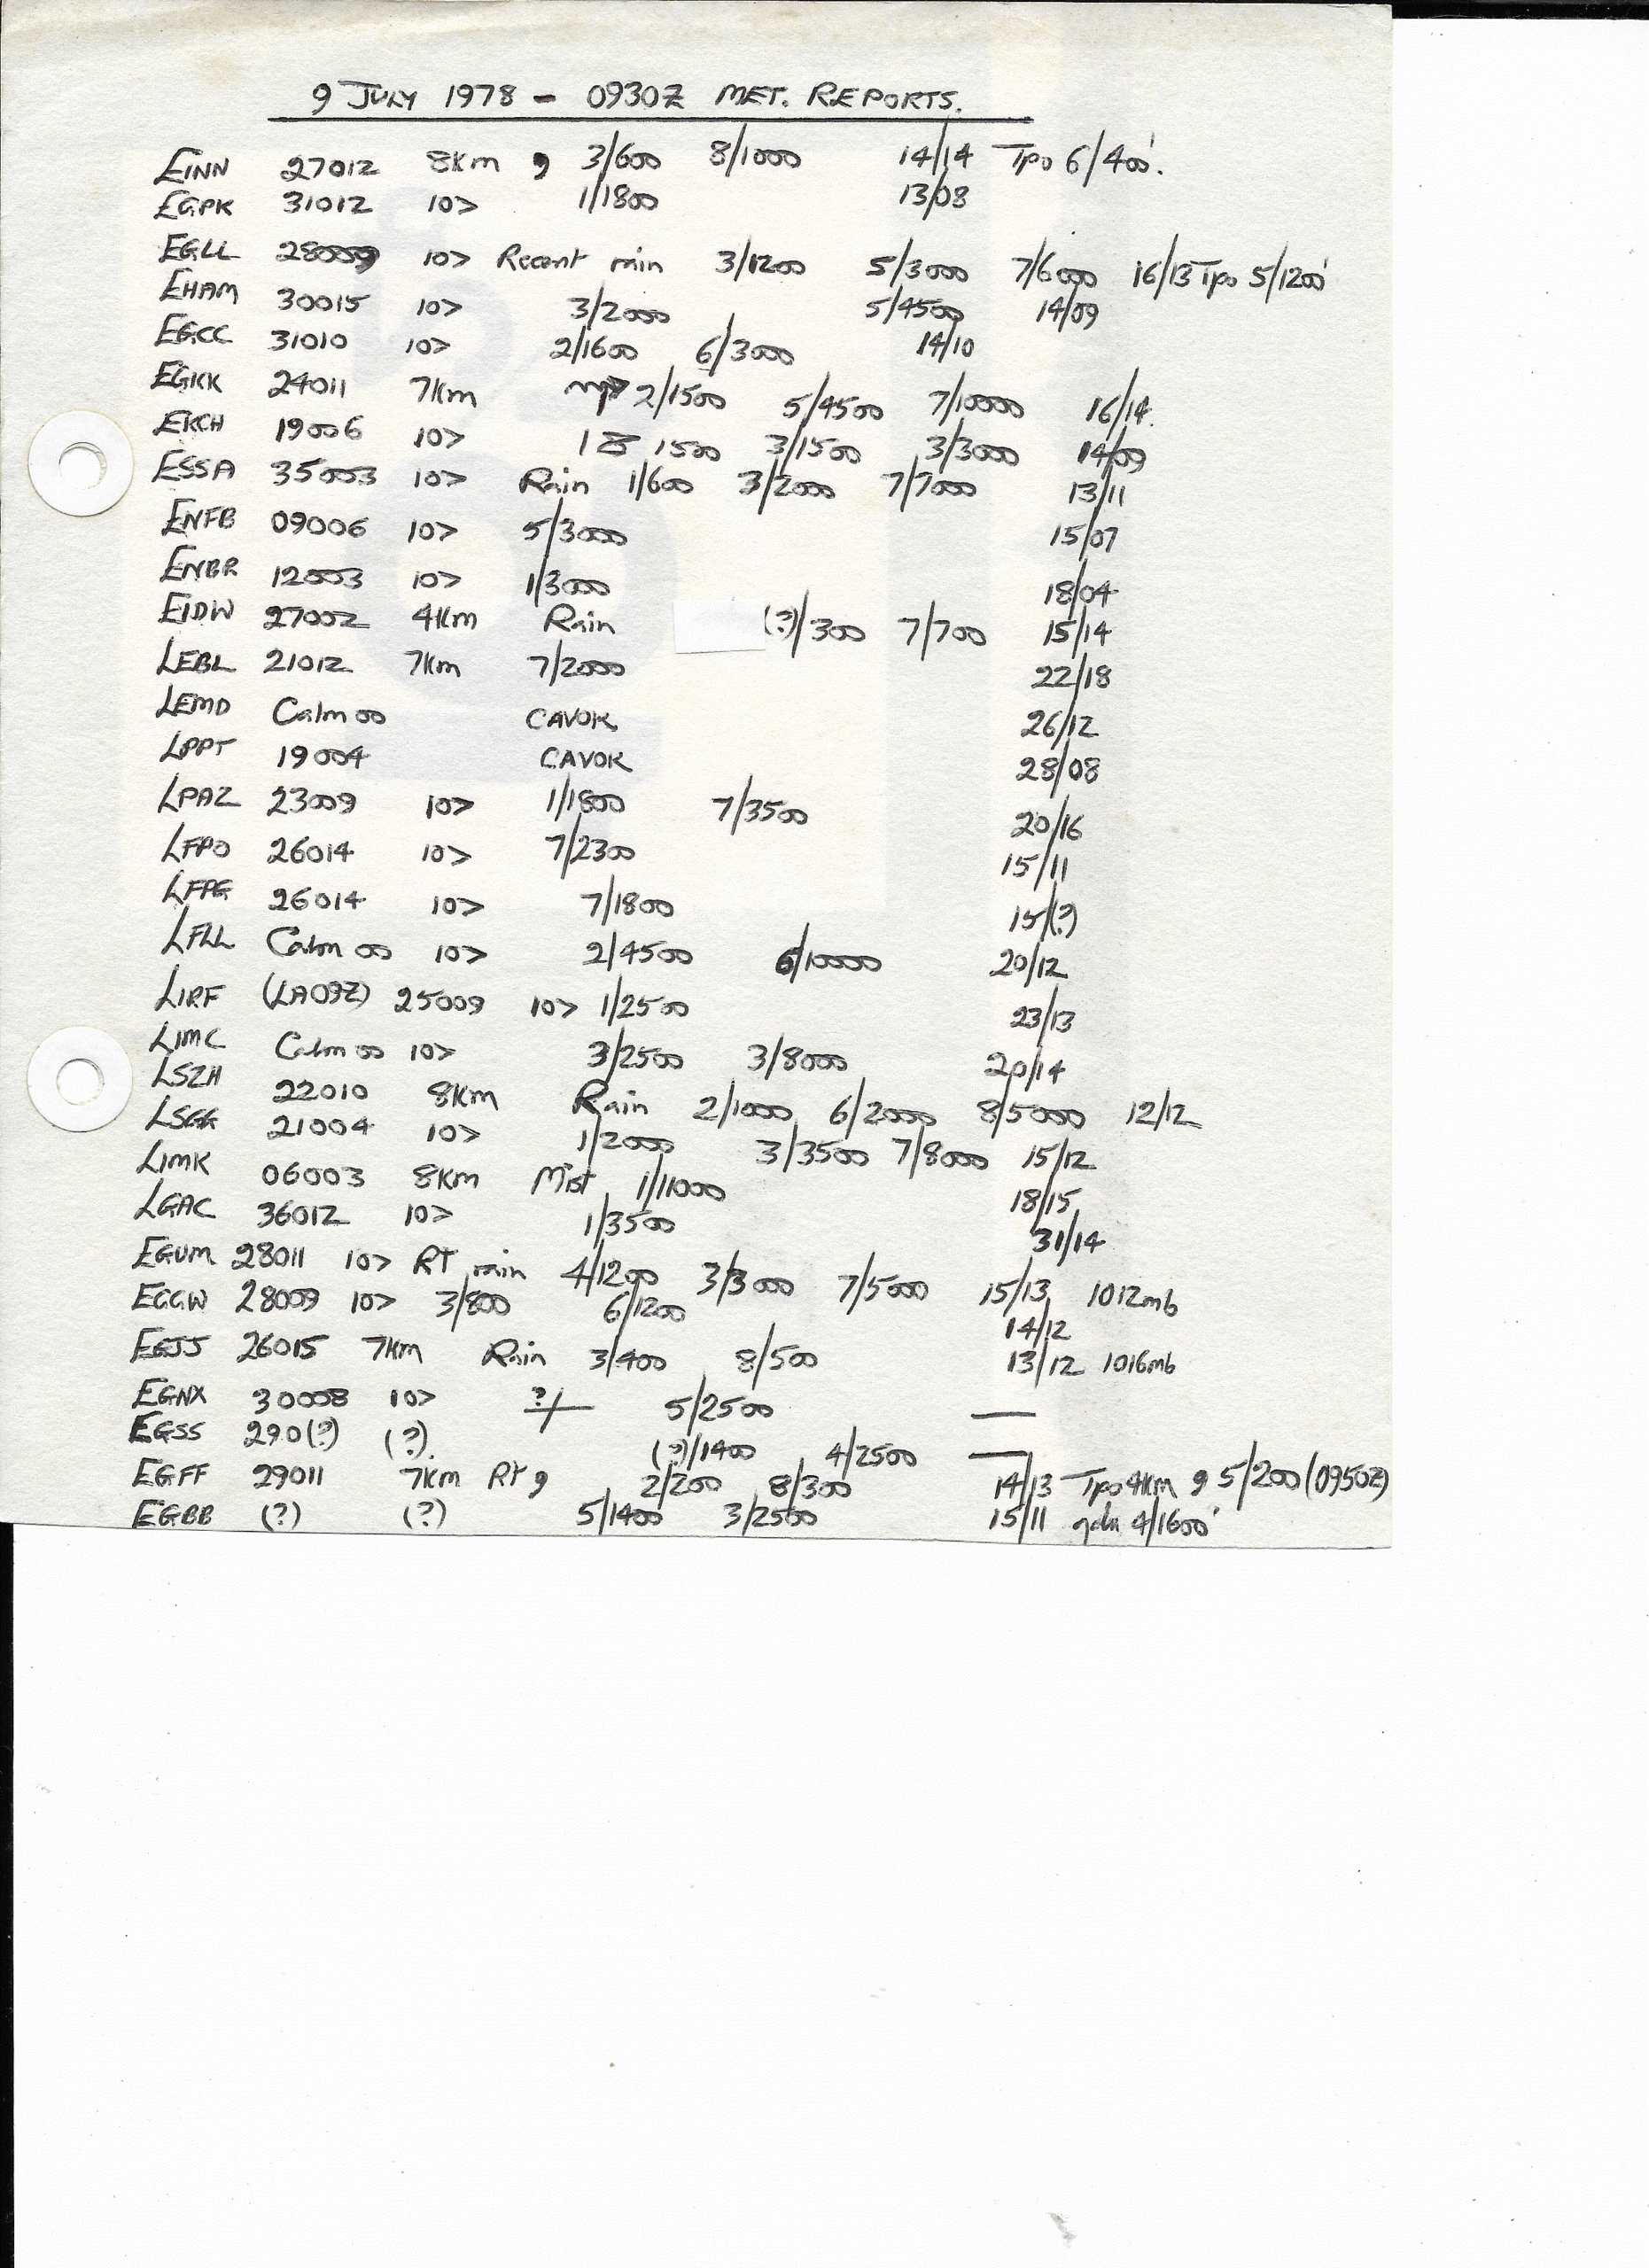 9 JULY 1978 - 0930Z MET. REPORTS.
EINN 27012 8Km , 3/600 8/1000 14/14 Tpo 6/400'.
EGPK 31012 10> 1/1800 13/08
EGLL 28009 10> Recent rain 3/1200 5/3000 7/6000 16/13 Tpo 5/1200'
EHAM 30015 10> 3/2000 5/4500 14/09
EGCC 31010 10> 2/1600 6/3000 14/10
EGKK 24011 7Km 2/1500 5/4500 7/10000 16/14.
EKCH 19006 10> 18 1500 3/1500 3/3000 14/09
ESSA 35003 10> Rain 1/600 3/2000 7/7000 13/11
ENFB 09006 10> 5/3000 15/07
ENBR 12003 10> 1/3000 18/04
EIDW 27002 4Km Rain (?)/300 7/700 15/14
LEBL 21012 7Km 7/2000 22/18
LEMD Calm 00 CAVOK 26/12
LPPT 19004 CAVOK 28/08
LPAZ 23009 10> 1/1800 7/3500 20/16
LFPO 26014 10> 7/2300 15/11
LFPG 26014 10> 7/1800 15/(?)
LFLL Calm 00 10> 2/4500 6/10000 20/12
LIRF (LA09Z) 25009 10> 1/2500 23/13
LIMC Calm 00 10> 3/2500 3/8000 20/14
LSZH 22010 8Km Rain 2/1000 6/2000 8/5000 12/12
LSGG 21004 10> 1/2000 3/3500 7/8000 15/12
LIMK 06003 8Km Mist 1/11000 18/15
LGAC 36012 10> 1/3500 31/14
EGUM 28011 10> RT rain 4/1200 3/3000 7/5000 15/13 1012mb
EGGW 28009 10> 3/800 6/1200 14/12
EGJJ 26015 7Km Rain 3/400 8/500 13/12 1016mb
EGNX 30008 10> ?/ 5/2500 —
EGSS 290(?) (?). (?)/1400 4/2500 —
EGFF 29011 7Km RT , 2/200 8/300 14/13 Tpo 4Km , 5/200 (0950Z)
EGBB (?) (?) 5/1400 3/2500 15/11 gdu 4/1600'